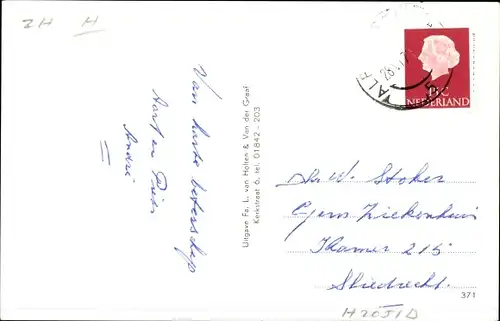 IH H
Van harte beterschap
Aart en Rieki
André
Uitgave Fa. L. van Holten & Van der Graaf
Kerkstraat 6, tel. 01842 - 203
15 C
NEDERLAND
Dhr. W. Stoker
Gem Ziekenhuis
Kamer 215
Sliedrecht.
371